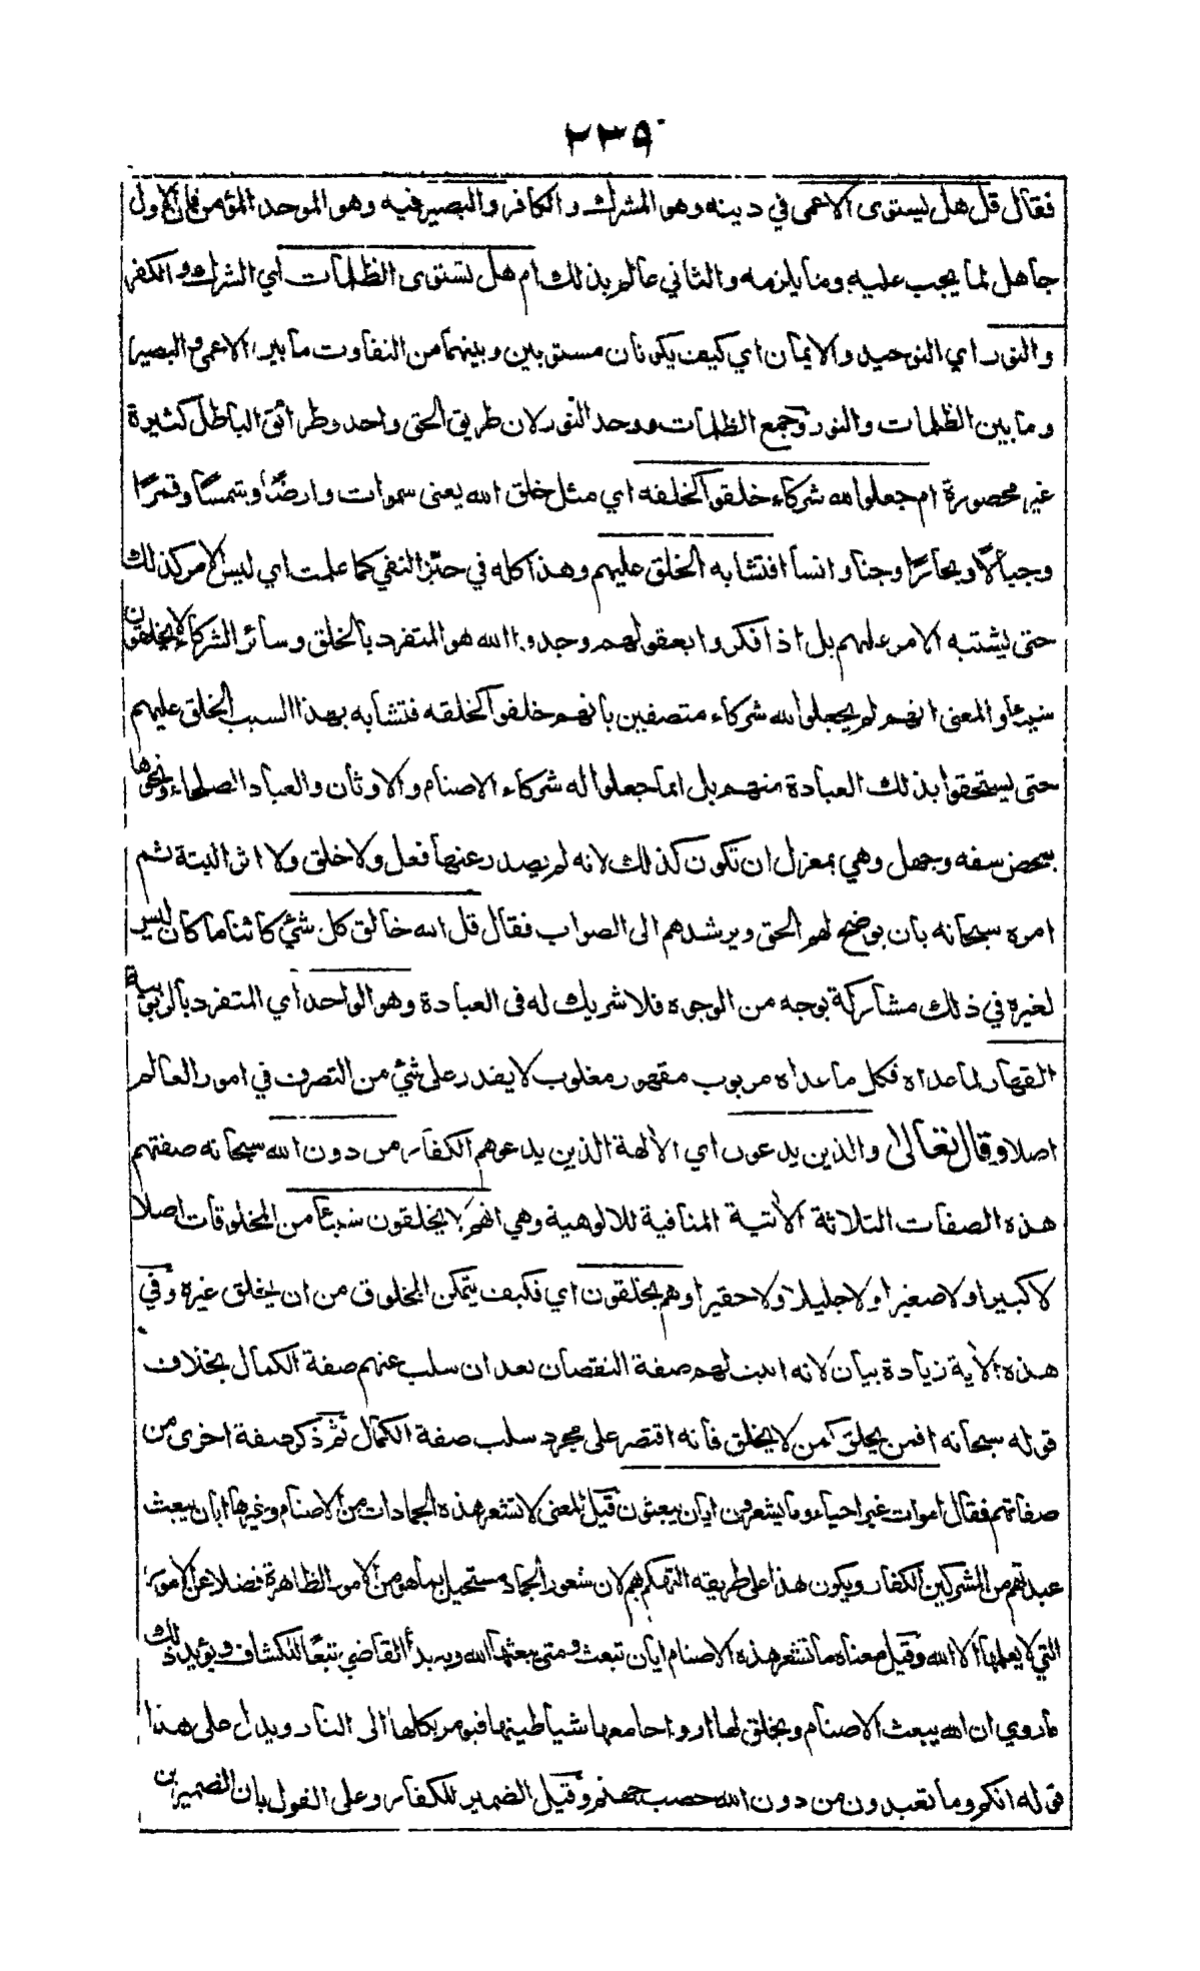 ٢٣٩
فقال قل هل يستوى الاعمى في دينه وهو المشرك والكافر والبصير فيه وهو الموحد المؤمن فان الاول
جاهل لما يجب عليه وما يلزمه والثاني عالم بذلك ام هل تستوى الظلمات اي الشرك والكفر
والنور اي التوحيد والايمان اي كيف يكونان مستويين وبينهما من التفاوت ما بين الاعمى والبصير
وما بين الظلمات والنور وجمع الظلمات ووحد النور لان طريق الحق واحد وطرائق الباطل كثيرة
غير محصورة ام جعلوا لله شركاء خلقوا كخلقه اي مثل خلق الله يعنى سموات وارضا وشمسا وقمرا
وجبالا وبحارا وجنا وانسا فتشابه الخلق عليهم وهذا كله في حيز النفي كما علمت اي ليس الامر كذلك
حتى يشتبه الامر عليهم بل اذا فكروا بعقولهم وجدوا الله هو المتفرد بالخلق وسائر الشركاء لا يخلقون
شيئا والمعنى انهم لم يجعلوا لله شركاء متصفين بانهم خلقوا كخلقه فتشابه بهذا السبب الخلق عليهم
حتى يستحقوا بذلك العبادة منهم بل انما جعلوا له شركاء الاصنام والاوثان والعباد الصلحاء ونحوها
بمحض سفه وجهل وهي بمعزل ان تكون كذلك لانه لم يصدر عنها فعل ولا خلق ولا اثر البتة ثم
امره سبحانه بان يوضح لهم الحق ويرشدهم الى الصواب فقال قل الله خالق كل شئ كائنا ما كان ليس
لغيره في ذلك مشاركة بوجه من الوجوه فلا شريك له فى العبادة وهو الواحد اي المتفرد بالربوبية
القهار لما عداه فكل ما عداه مربوب مقهور مغلوب لا يقدر على شئ من التصرف في امور العالم
اصلا وقال تعالى والذين يدعون اي الآلهة الذين يدعوهم الكفار من دون الله سبحانه صفتهم
هذه الصفات الثلاثة الآتية المنافية للالوهية وهي انهم لا يخلقون شيئا من المخلوقات اصلا
لا كبيرا ولا صغيرا ولا جليلا ولا حقيرا وهم يخلقون اي فكيف يتمكن المخلوق من ان يخلق غيره وفي
هذه الآية زيادة بيان لانه اثبت لهم صفة النقصان بعد ان سلب عنهم صفة الكمال بخلاف
قوله سبحانه افمن يخلق كمن لا يخلق فانه اقتصر على مجرد سلب صفة الكمال ثم ذكر صفة اخرى من
صفاتهم فقال اموات غير احياء وما يشعرون ايان يبعثون قيل المعنى لا تشعر هذه الجمادات من الاصنام وغيرها ايان يبعث
عبدتهم من المشركين الكفار ويكون هذا على طريقه التهكم بهم لان شعور الجماد مستحيل بما هو من الامور الظاهرة فضلا عن الامور
التي لا يعلمها الا الله وقيل معناه ما تشعر هذه الاصنام ايان تبعث ومتى يبعثها الله وبه بدأ القاضي تبعا للكشاف ويؤيد ذلك
ما روي ان الله يبعث الاصنام ويخلق لها ارواحا معها شياطينها فيؤمر بكلها الى النار ويدل على هذا
قوله انكم وما تعبدون من دون الله حصب جهنم وقيل الضمير للكفار وعلى القول بان الضميرين